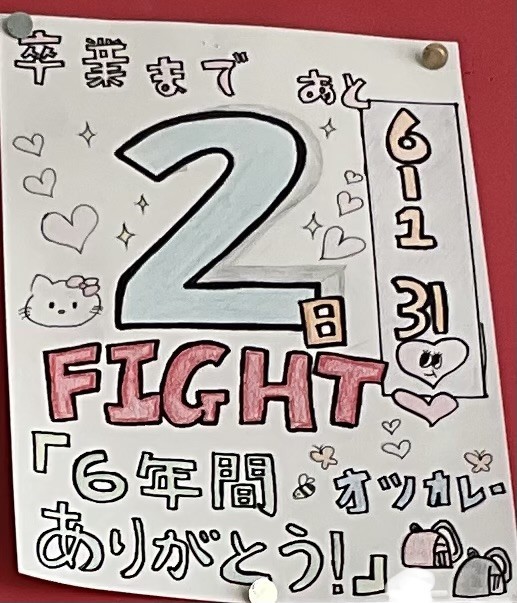 卒業まで あと
2日
6-1
31
FIGHT
「6年間 オツカレー
ありがとう!」